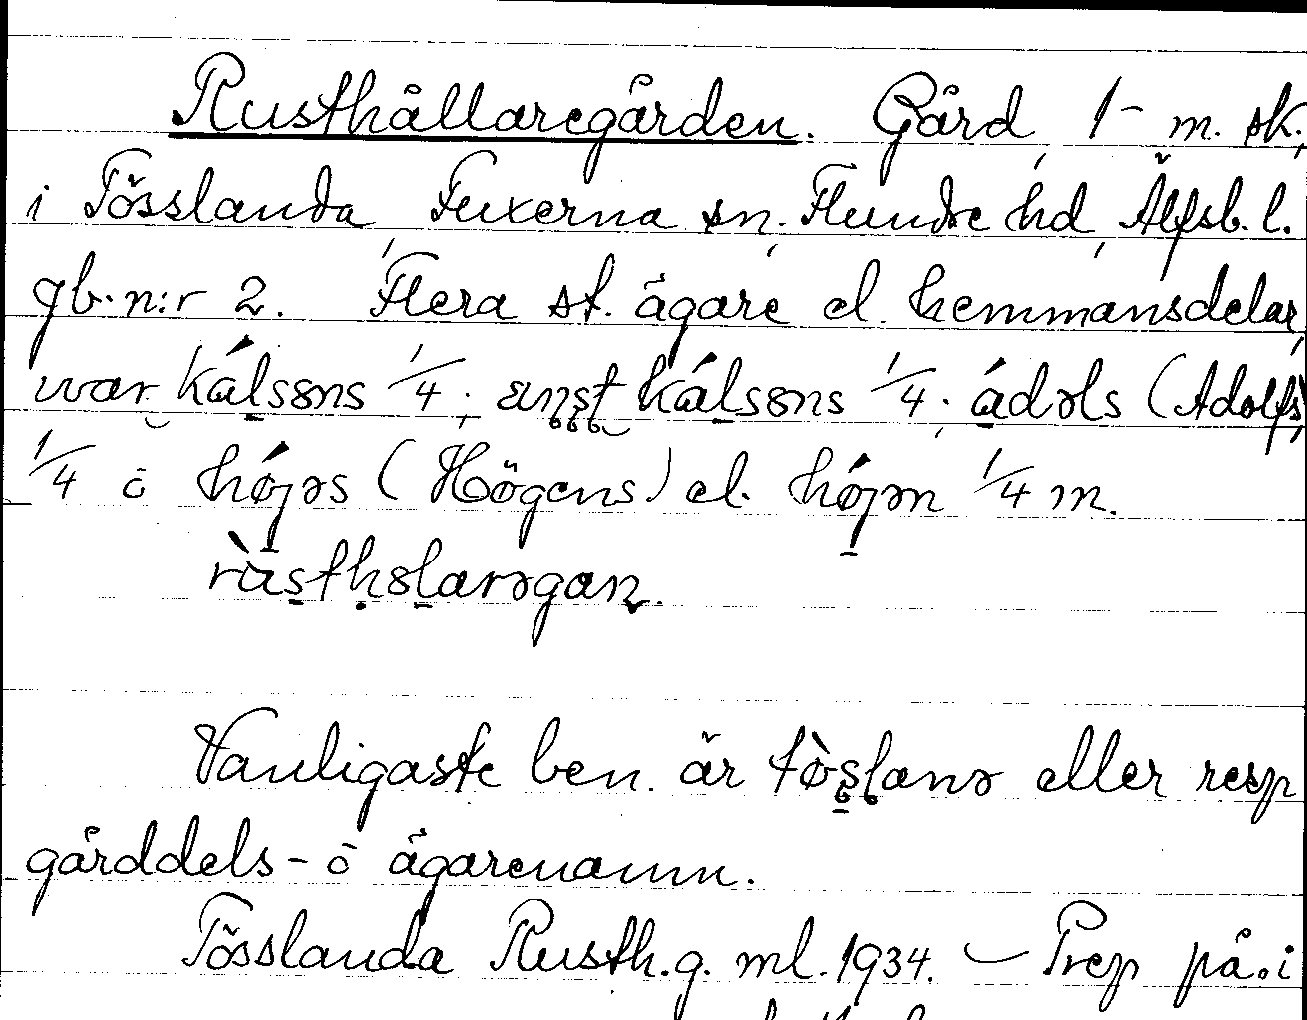 Rusthållaregården. Gård, 1 m. sk.,
i Tösslanda, Fuxerna sn., Flundre hd, Älfsb. l.
gb. n:r 2. Flera st. ägare el. hemmansdelar,
ivar kálsøns 1/4; ænst kálsøns 1/4; ádəls (Adolfs)
1/4 ö højəs (Högens) el. højən 1/4 m.
rùsthølarəgan.
Vanligaste ben. är tòslanə eller resp
gårddels- ö ägarenamn.
Tösslanda Rusth.g. ml. 1934. – Prep på. i